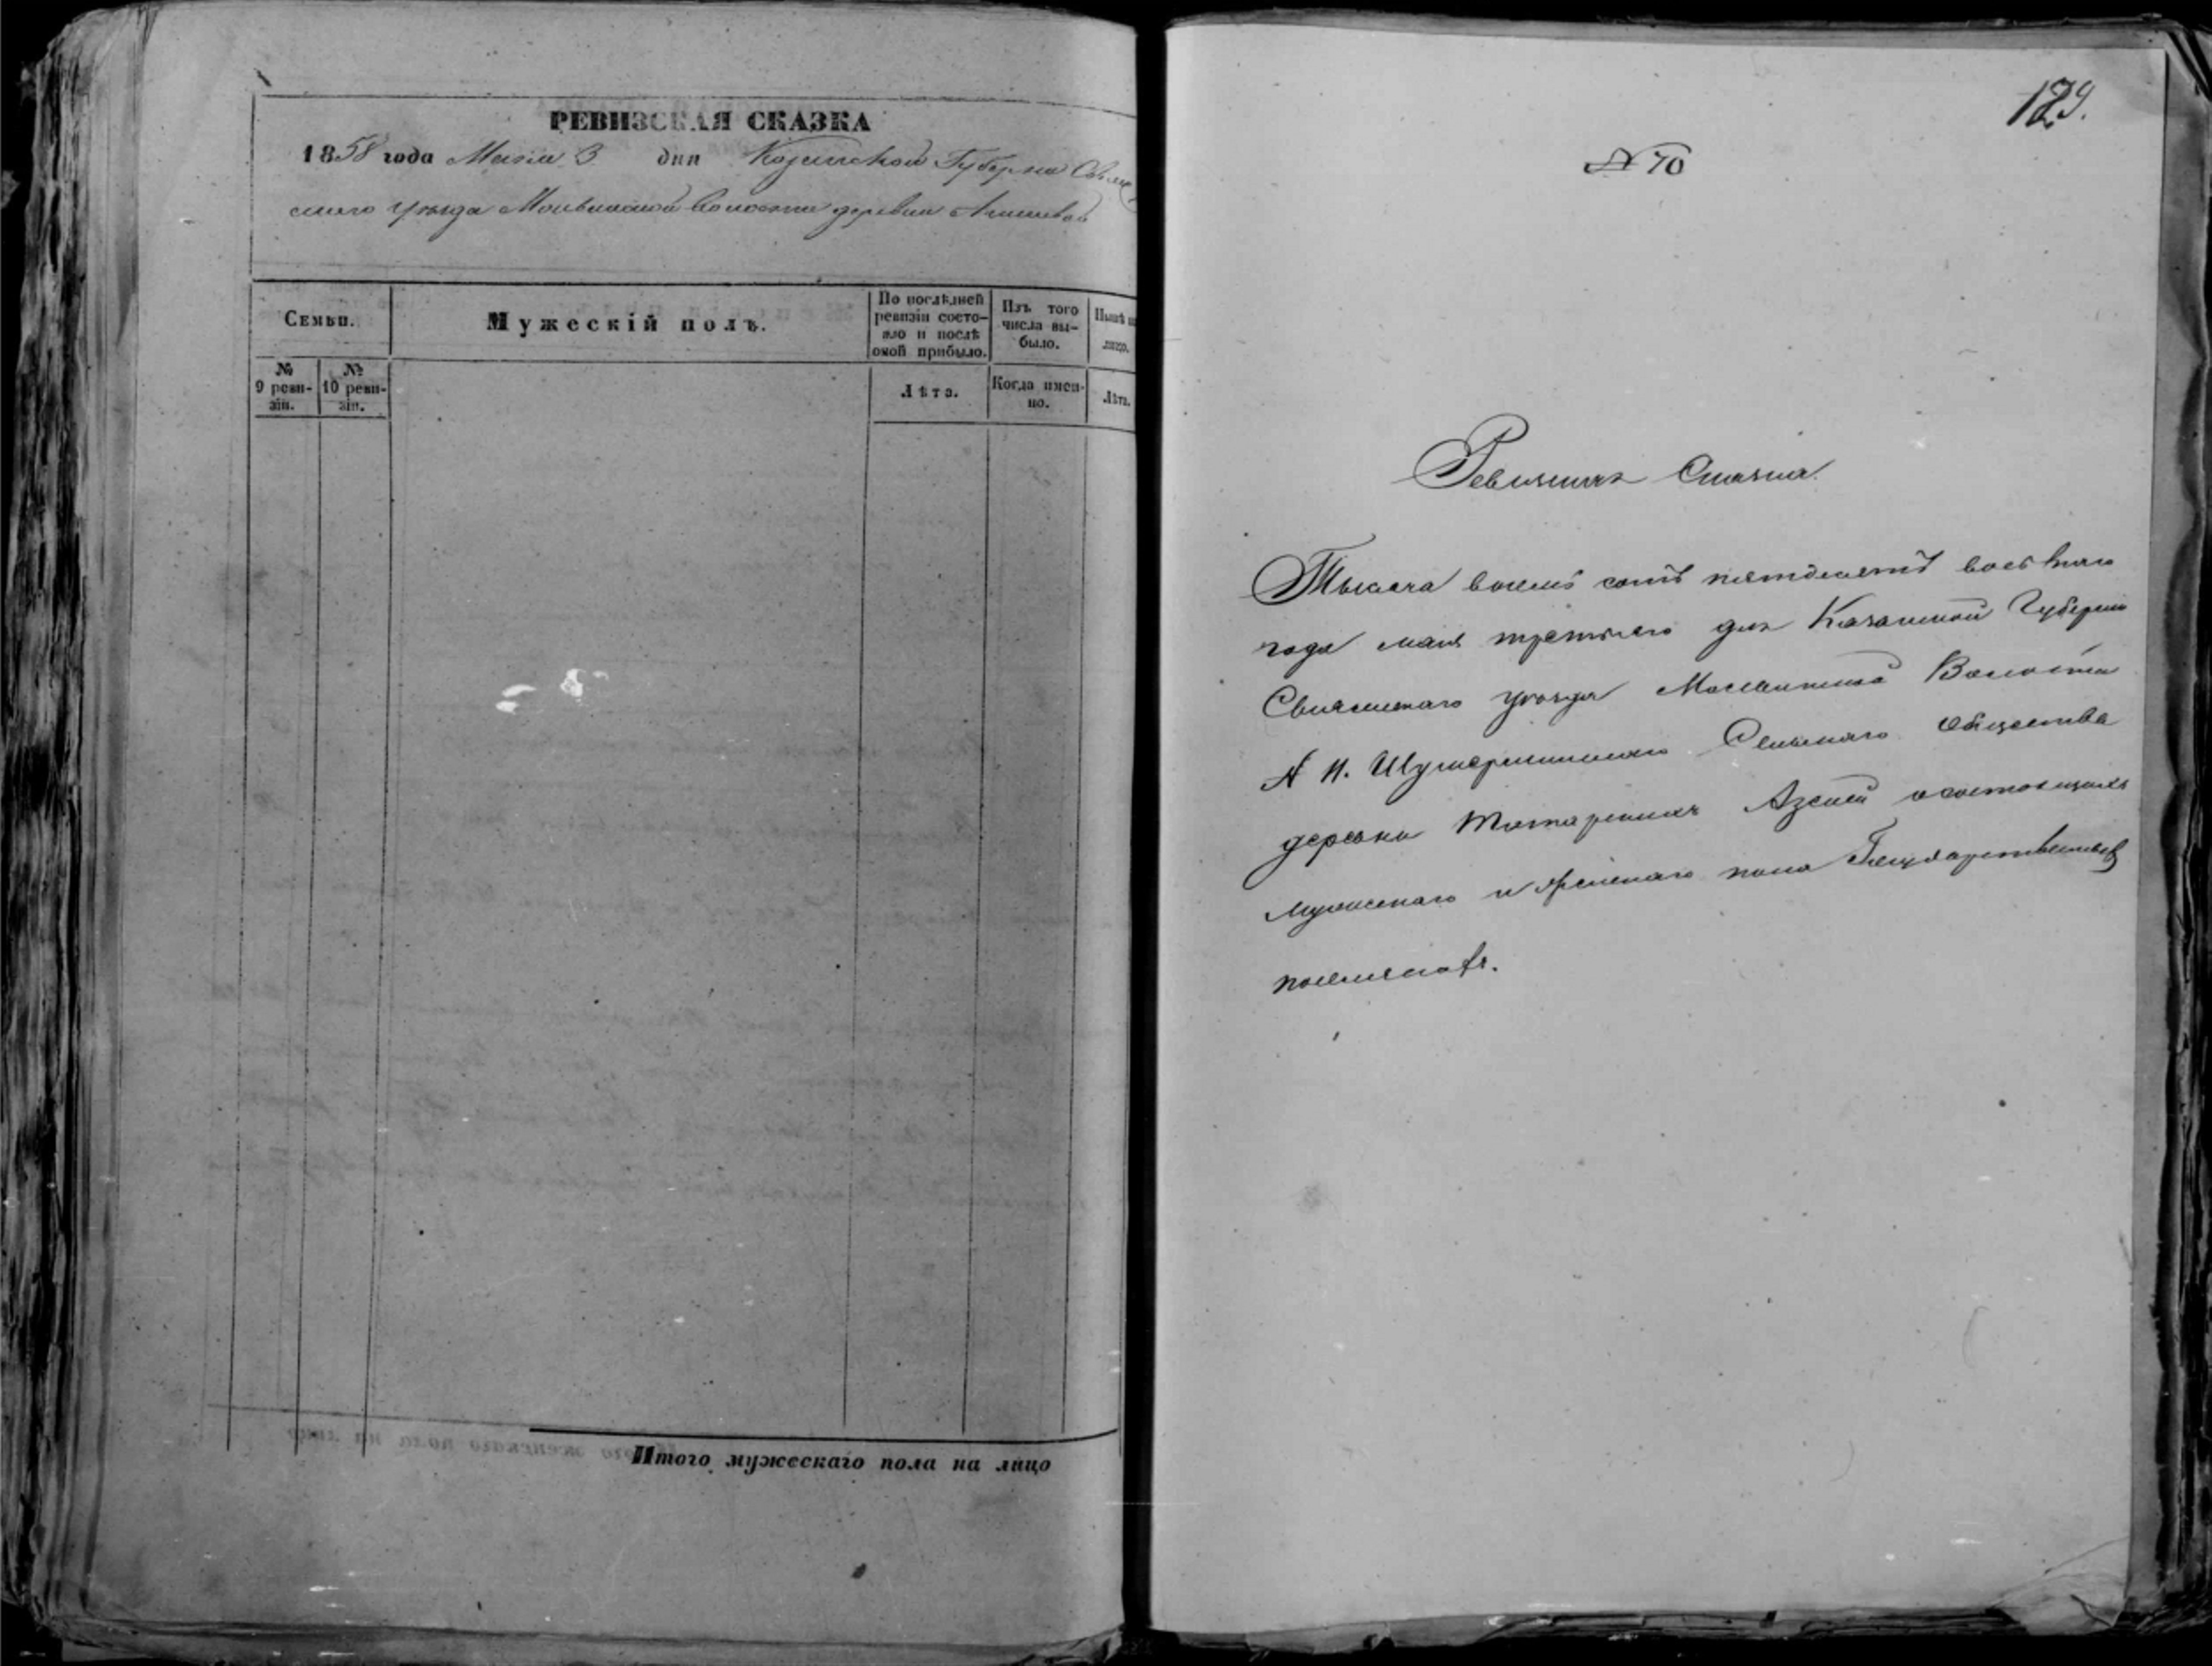 РЕВИЗСКАЯ СКАЗКА
1858 года Маія 3 дня Казанской Губерніи Свіяж
скаго уѣзда волости деревни
Семьи.
Мужескій полъ.
По послѣдней ревизіи состояло и послѣ оной прибыло.
Изъ того числа вы-
было.
Нынѣ на
лицо.
№
9 реви-
зіи.
№
10 реви-
зіи.
Лѣта.
Когда имен-
но.
Лѣта.
Итого мужескаго пола на лицо
129.
№ 70
Ревизская Сказка
Тысяча восемь сотъ пятьдесятъ восьмаго
года маія третьяго дня Казанской Губерніи
Свіяжскаго уѣзда Волости
Сельскаго Общества
деревни Татарскихъ Азелей о состоящихъ
мужескаго и женскаго пола Государственныхъ
поселянахъ.